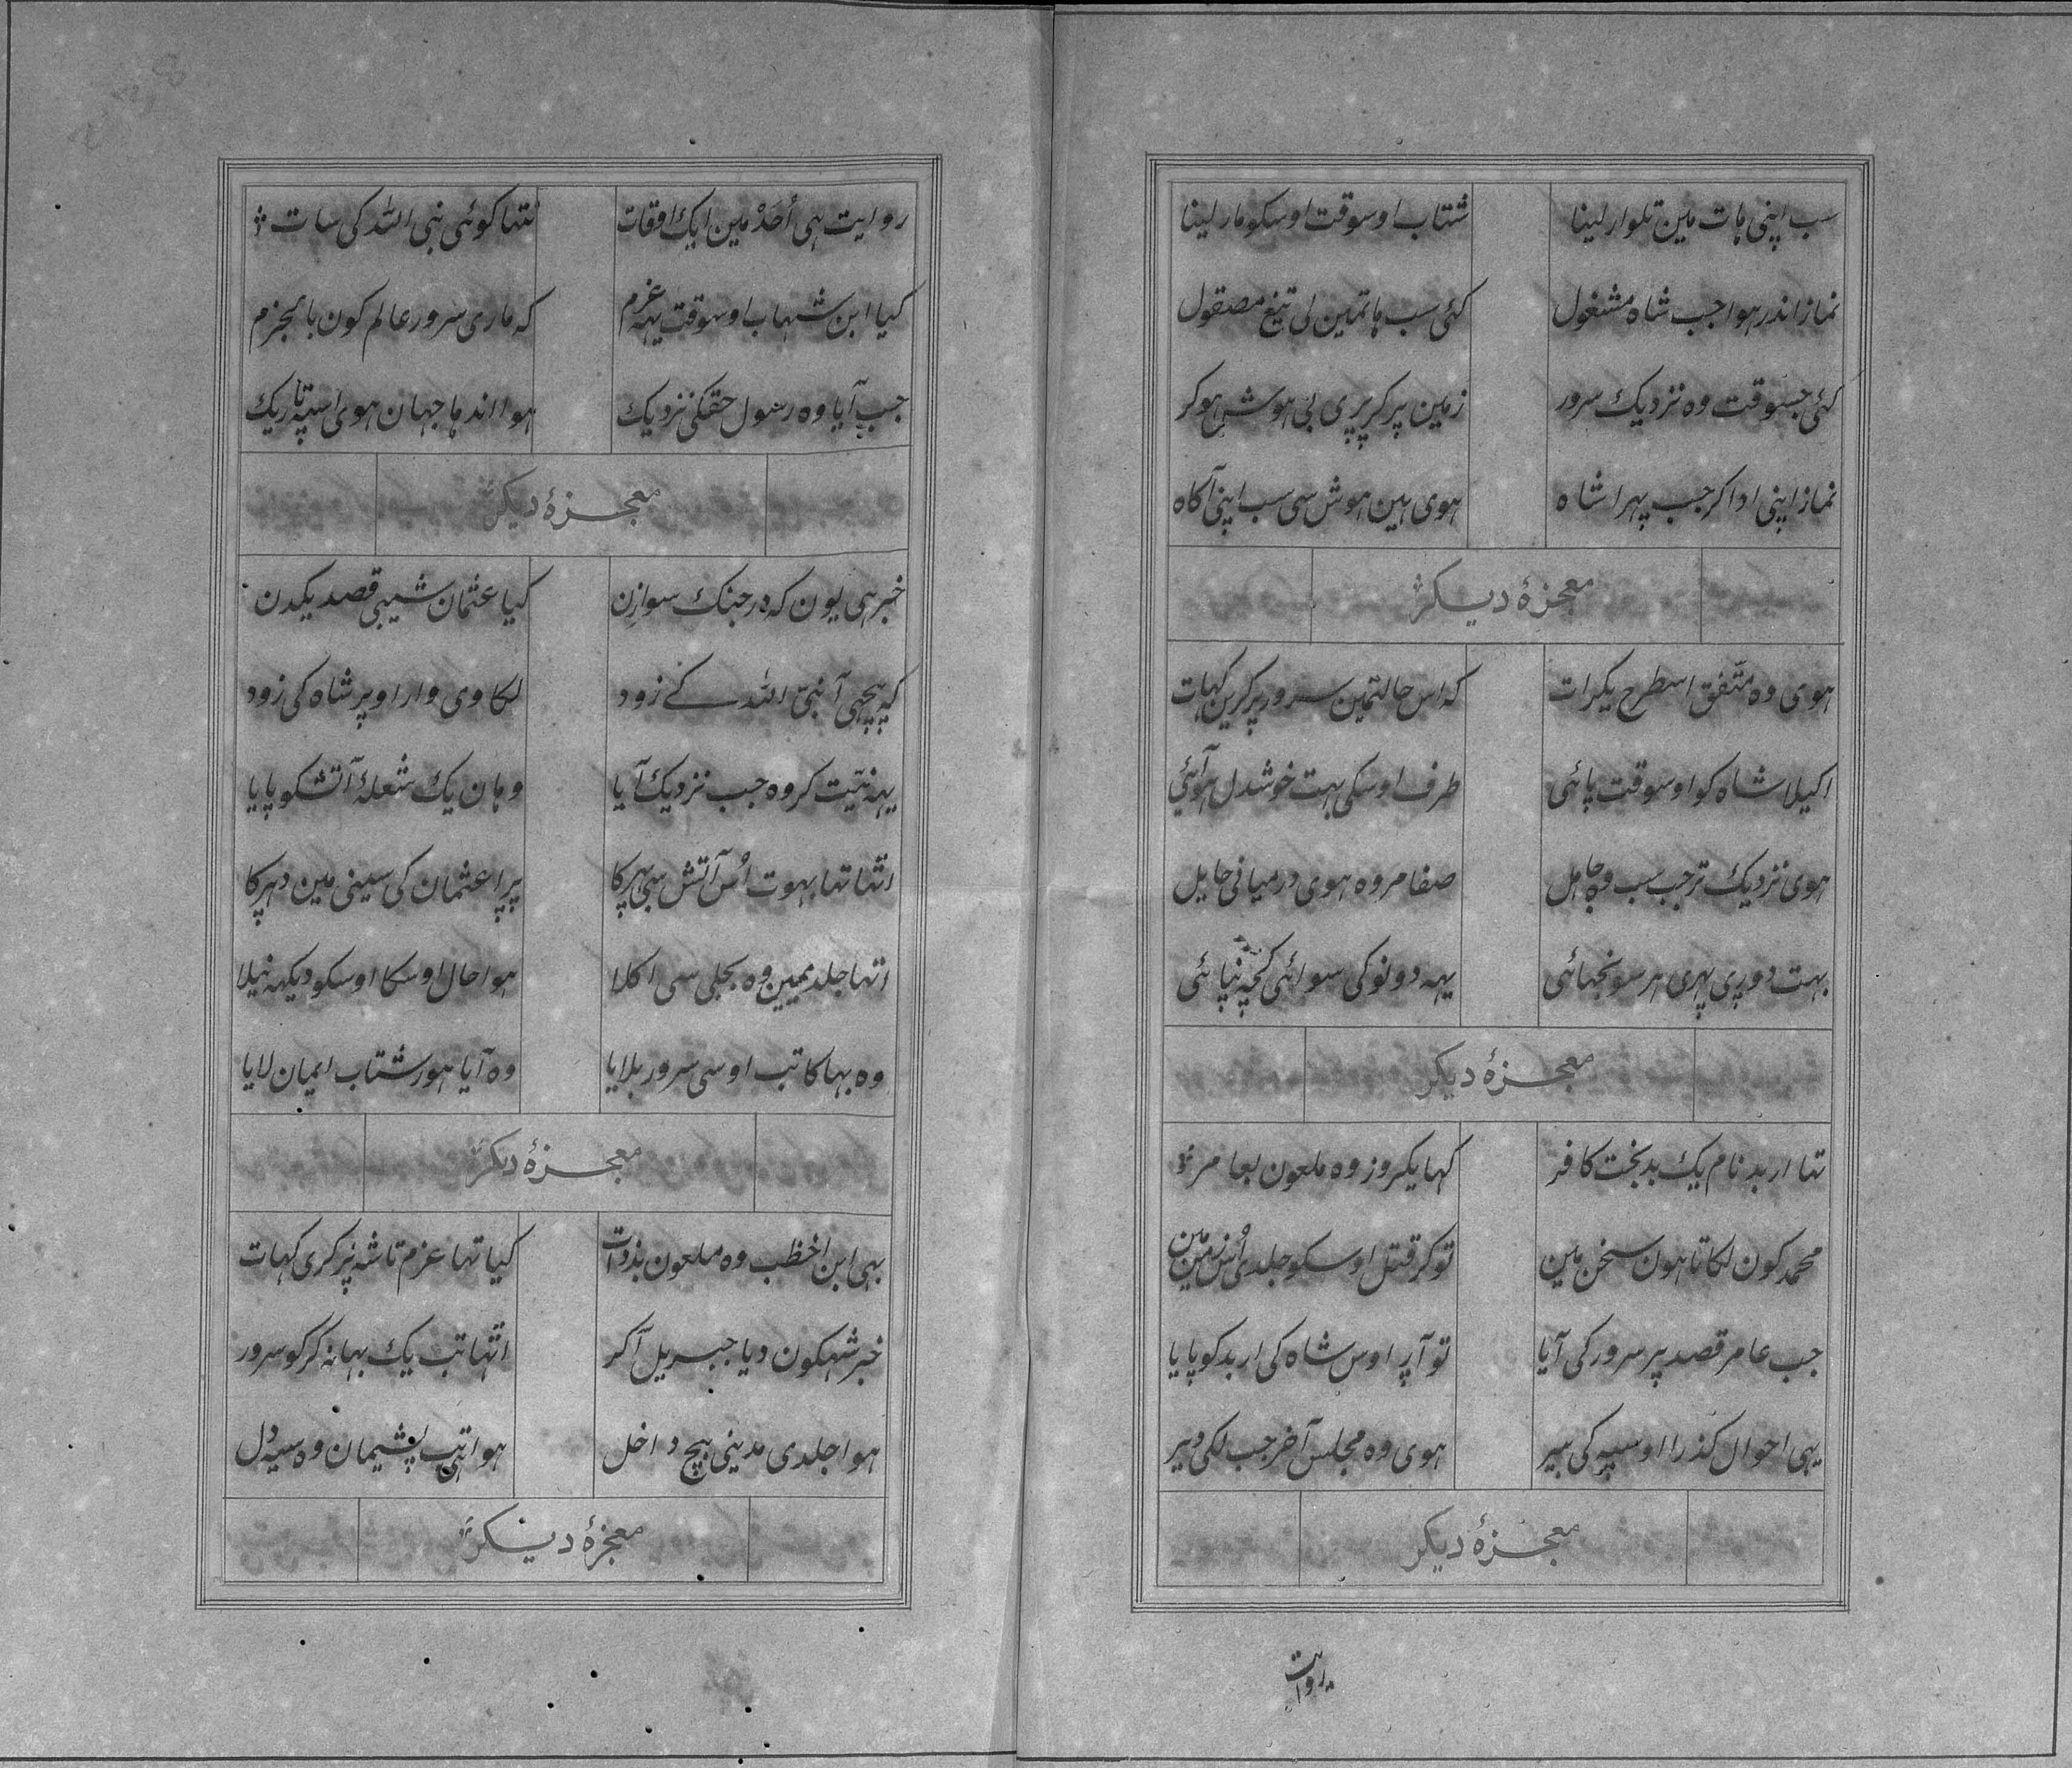 سب اپنی ہات مین تلوار لینا شتاب اوسوقت اوسکو مار لینا
نماز اندر ہوا جب شاہ مشغول کئی سب ہاتمین لی تیغ مصقول
کئی جسوقت وہ نزدیک سرور زمین پر کر پری بی ہوش ہوکر
نماز اپنی ادا کر جب پہرا شاہ ہوی ہین ہوش سی سب اپنی آکاہ
معجزۂ دیکر
ہوی وہ متّفق اسطرح یکرات کہ اس حالتمین سرور پر کرین کہات
اکیلا شاہ کو اوسوقت پائی طرف اوسکی بہت خوشدل ہو آئی
ہوی نزدیک تر جب سب وہ جاہل صفا مروہ ہوی درمیانی حایل
بہت دوری پہری ہر سو نجہائی یہہ دونو کی سوائی کچہ نپائی
معجزۂ دیکر
تہا اربد نام یک بدبخت کافر کہا یکروز وہ ملعون بعامر
محمد کون لکاتا ہون سخن مین توکر قتل اوسکو جلدی اُس زمین مین
جب عامر قصد پر سرور کی آیا تو آر اوس شاہ کی اربد کو پایا
یہی احوال کذرا اوسپہ کی بیر ہوی وہ مجلس آخر جب لکی دیر
معجزۂ دیکر
روایت
روایت ہی اُحَدْ مین ایک اوقات نتہا کوئی نبی اللہ کی سات
کیا ابن شہاب اوسوقت یہہ عزم کہ ماری سرور عالم کون بالجزم
جب آیا وہ رسول حقکی نزدیک ہوا اندہا جہان ہوی اسپہ تاریک
معجزۂ دیکر
خبر ہی یون کہ در جنک ہوازن کیا عثمان شیبی قصد یکدن
کہ پیچہی آ نبی اللہ کے زود لکاوی وار اوپر شاہ کی زود
یہہ نیّت کر وہ جب نزدیک آیا وہان یک شعلۂ آتشکو پایا
اتہا تہا بہوت اُس آتش سی بہرکا پرا عثمان کی سینی مین دہرکا
اتہا جلدیمین وہ بجلی سی اکلا ہوا حال اوسکا اوسکو دیکہہ نیلا
وہ بہاکا تب اوسی سرور بلایا وہ آیا ہور شتاب ایمان لایا
معجزۂ دیکر
بہی ابن اخظب وہ ملعون بدذات کیا تہا عزم تا شہ پر کری کہات
خبر شہکون دیا جبریل آکر اتہا تب یک بہانہ کرکو سرور
ہوا جلدی مدینی بیچ داخل ہوا تب پشیمان وہ سیہ دل
معجزۂ دیکر